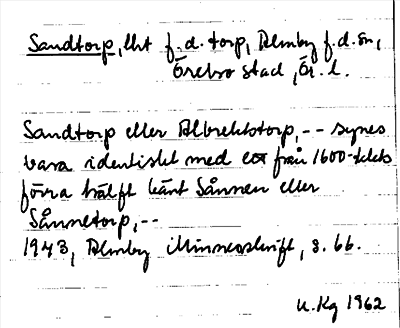 Sandtorp, lht f.d. torp, Almby f.d. sn,
Örebro stad, Ör. l.
Sandtorp eller Albrektstorp, -- synes
vara identiskt med ett från 1600-talets
förra hälft känt Sånnen eller
Sånnetorp, --
1943, Almby Minnesskrift, s. 66.
U. Kg 1962